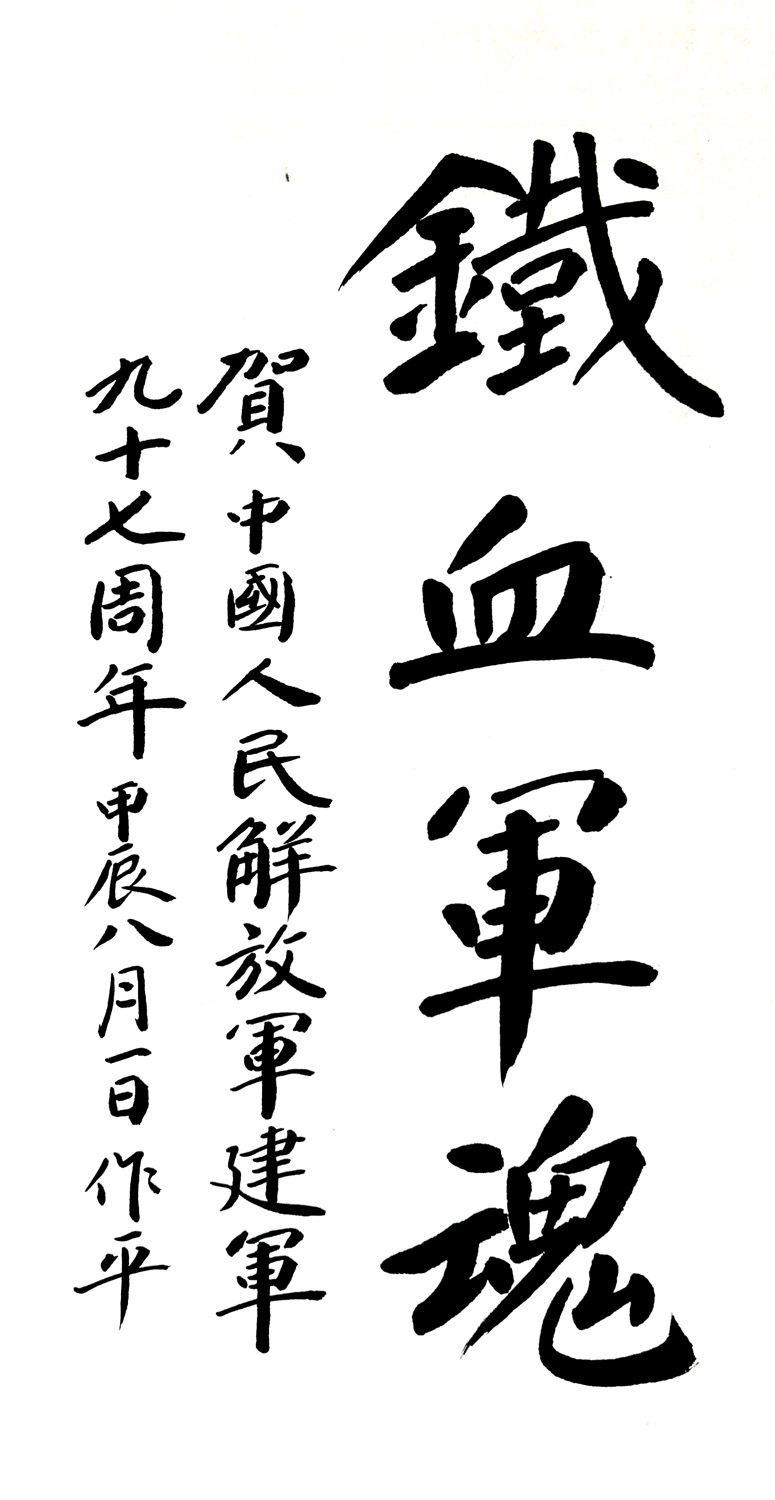 鐵血軍魂
賀中國人民解放軍建軍
九十七周年甲辰八月一日作平